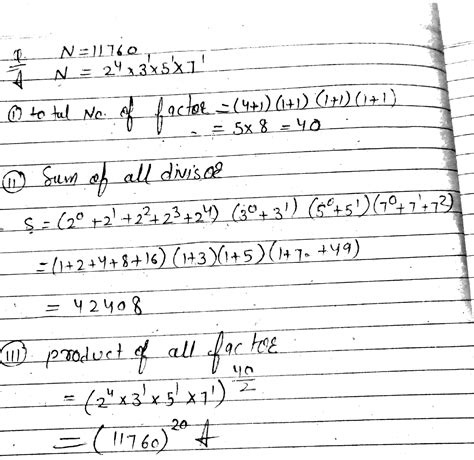 I N = 11760
A N = 2⁴ × 3¹ × 5¹ × 7¹
(i) total No. of factor = (4+1)(1+1)(1+1)(1+1)
= 5×8 = 40
(ii) Sum of all divisor
S = (2⁰+2¹+2²+2³+2⁴) (3⁰+3¹) (5⁰+5¹)(7⁰+7¹+7²)
= (1+2+4+8+16) (1+3)(1+5)(1+7+49)
= 42408
(iii) product of all factor
= (2⁴ × 3¹ × 5¹ × 7¹)^40/2
= (11760)²⁰ A